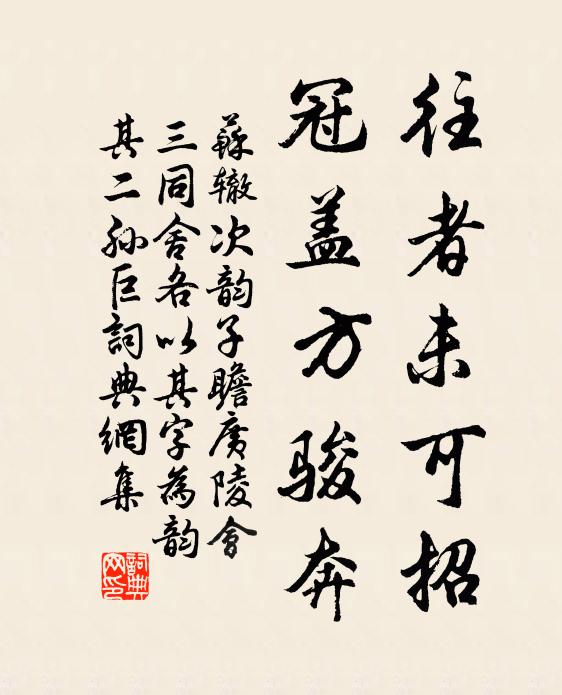 往者未可招
冠盖方骏奔
蘇辙次韵子瞻廣陵會
三同舍各以其字為韵
其二孙巨詞典網集
詞典网印